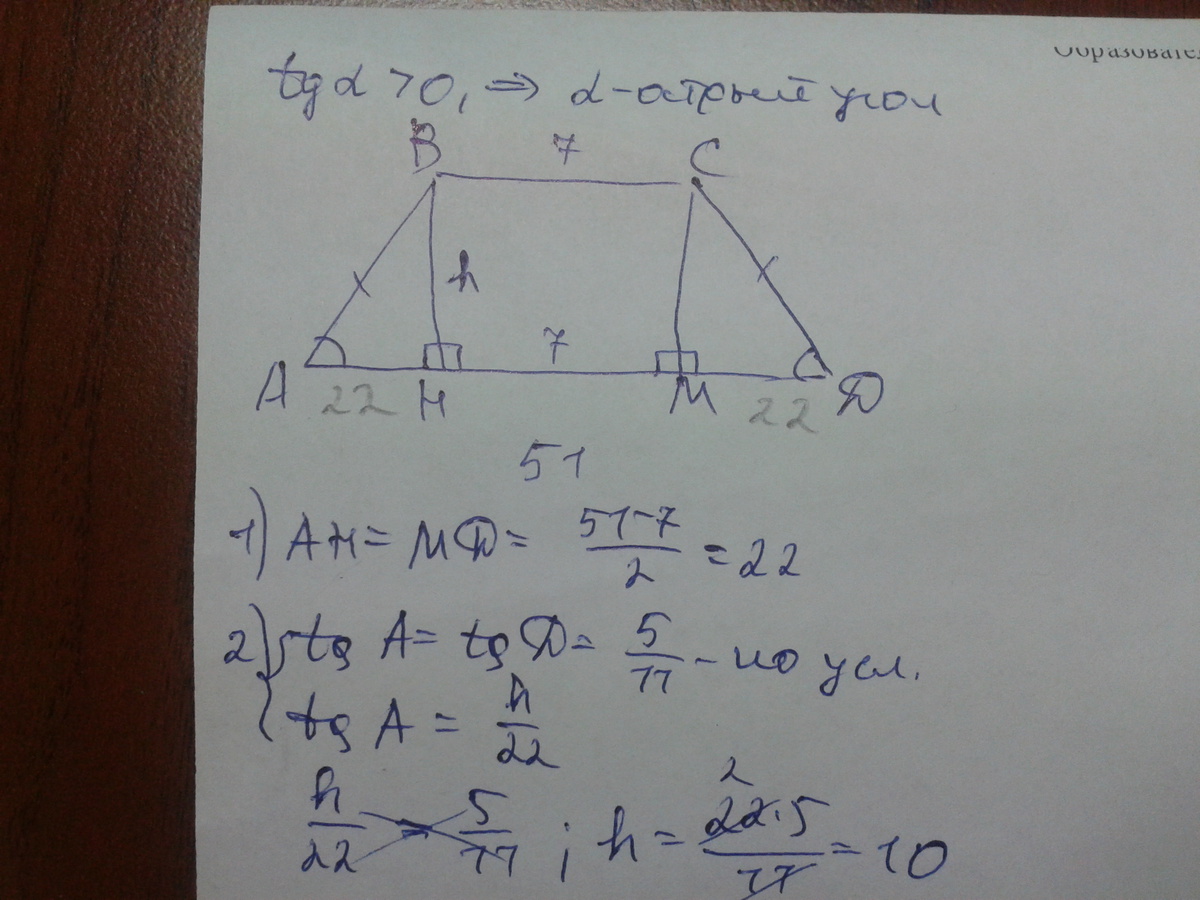 Образовател
tg α > 0, ⇒ α - острый угол
B 7 C
h
7
A 22 H M 22 D
51
1) AH = MD = (51-7)/2 = 22
2) { tg A = tg D = 5/11 - по усл.
tg A = h/22
h/22 = 5/11 ; h = (22·5)/11 = 10
2